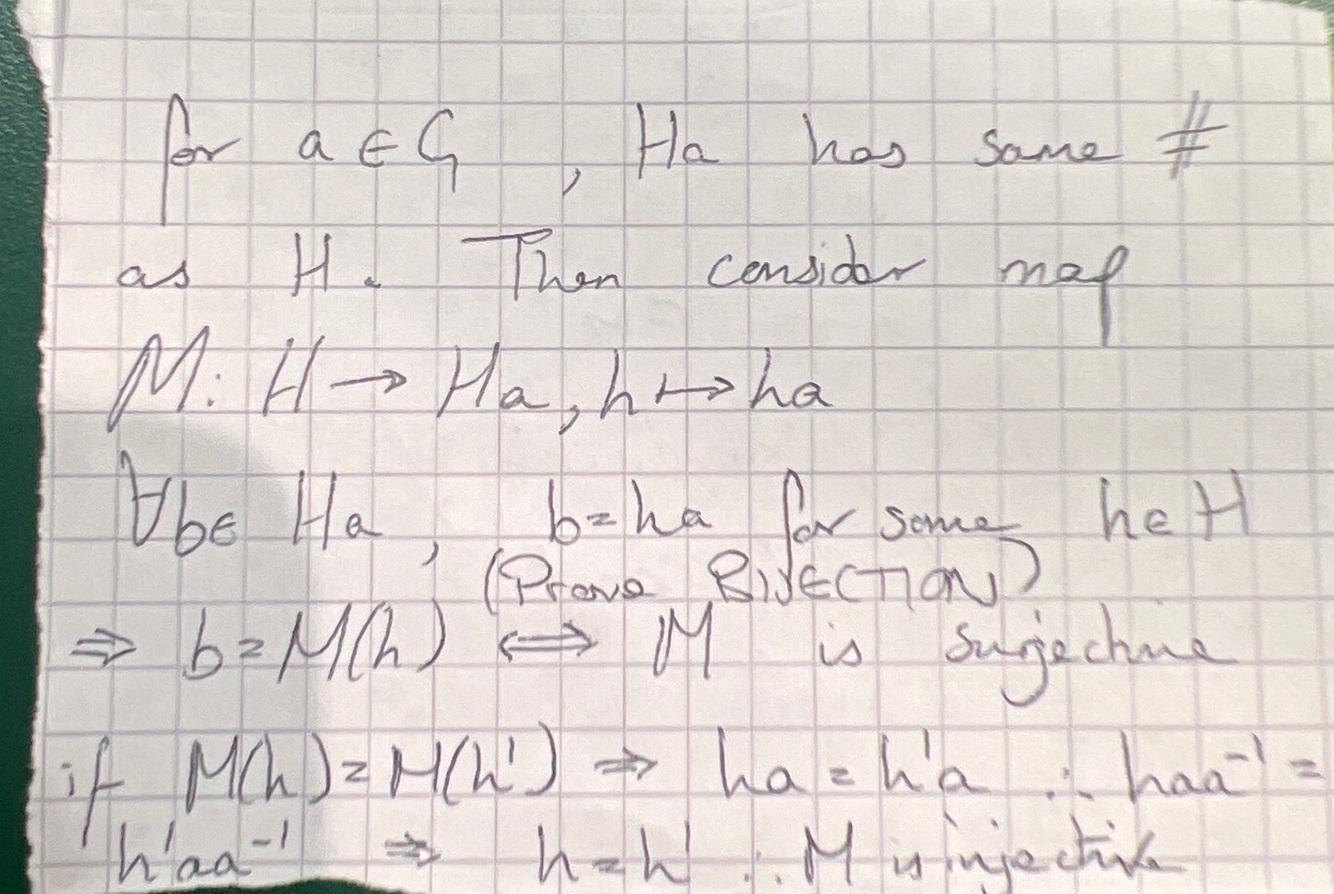 for a ∈ G, Ha has same #
as H. Then consider map
M: H → Ha, h ↦ ha
∀b∈ Ha, b = ha for some h∈H
(Prove BIJECTION)
⇒ b = M(h) ⟺ M is surjective
if M(h) = M(h') ⇒ ha = h'a ∴ haa⁻¹ =
h'aa⁻¹ ⇒ h = h' ∴ M is injective